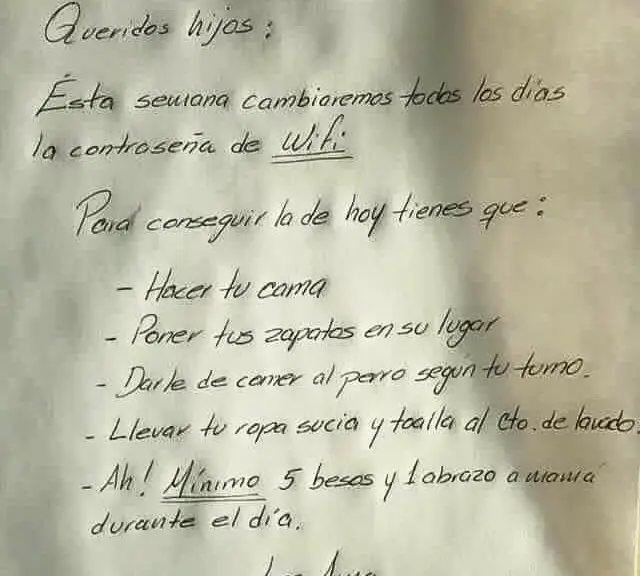 Queridos hijos:
Ésta semana cambiaremos todos los días
la contraseña de Wifi
Para conseguir la de hoy tienes que:
- Hacer tu cama
- Poner tus zapatos en su lugar
- Darle de comer al perro según tu turno.
- Llevar tu ropa sucia y toalla al Cto. de lavado.
- Ah! Mínimo 5 besos y 1 abrazo a mamá
durante el día.